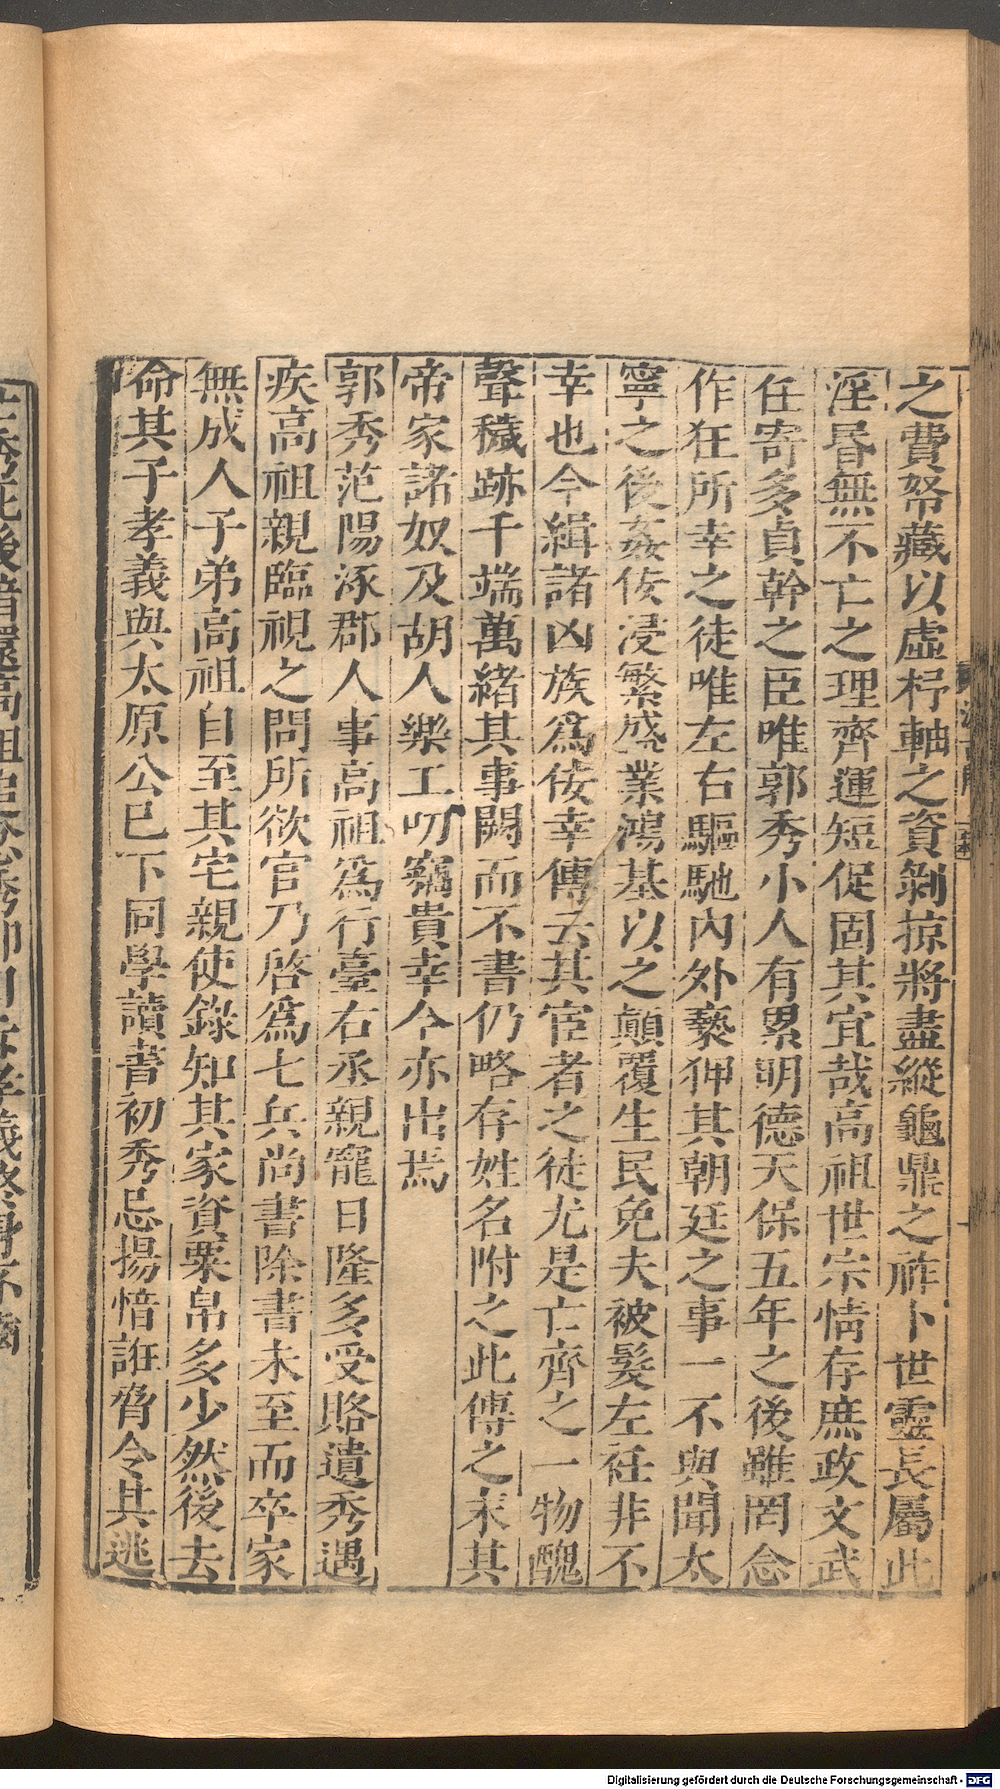 之費帑藏以虛杼軸之資剝掠將盡縱龜鼎之祚卜世靈長屬此
淫昬無不亡之理齊運短促固其宜哉高祖世宗情存庶政文武
任寄多貞幹之臣唯郭秀小人有累明德天保五年之後雖罔念
作狂所幸之徒唯左右驅馳內外褻狎其朝廷之事一不與聞太
寧之後姦佞浸繁盛業鴻基以之顛覆生民免夫被髮左衽非不
幸也今緝諸凶族爲佞幸傳云其宦者之徒尤是亡齊之一物醜
聲穢跡千端萬緒其事闕而不書仍略存姓名附之此傳之末其
帝家諸奴及胡人樂工叨竊貴幸今亦出焉
郭秀范陽涿郡人事高祖爲行臺右丞親寵日隆多受賂遺秀遇
疾高祖親臨視之問所欲官乃啓爲七兵尚書除書未至而卒家
無成人子弟高祖自至其宅親使錄知其家資粟帛多少然後去
命其子孝義與太原公已下同學讀書初秀忌揚愔誑脅令其逃
Digitalisierung gefördert durch die Deutsche Forschungsgemeinschaft - DFG